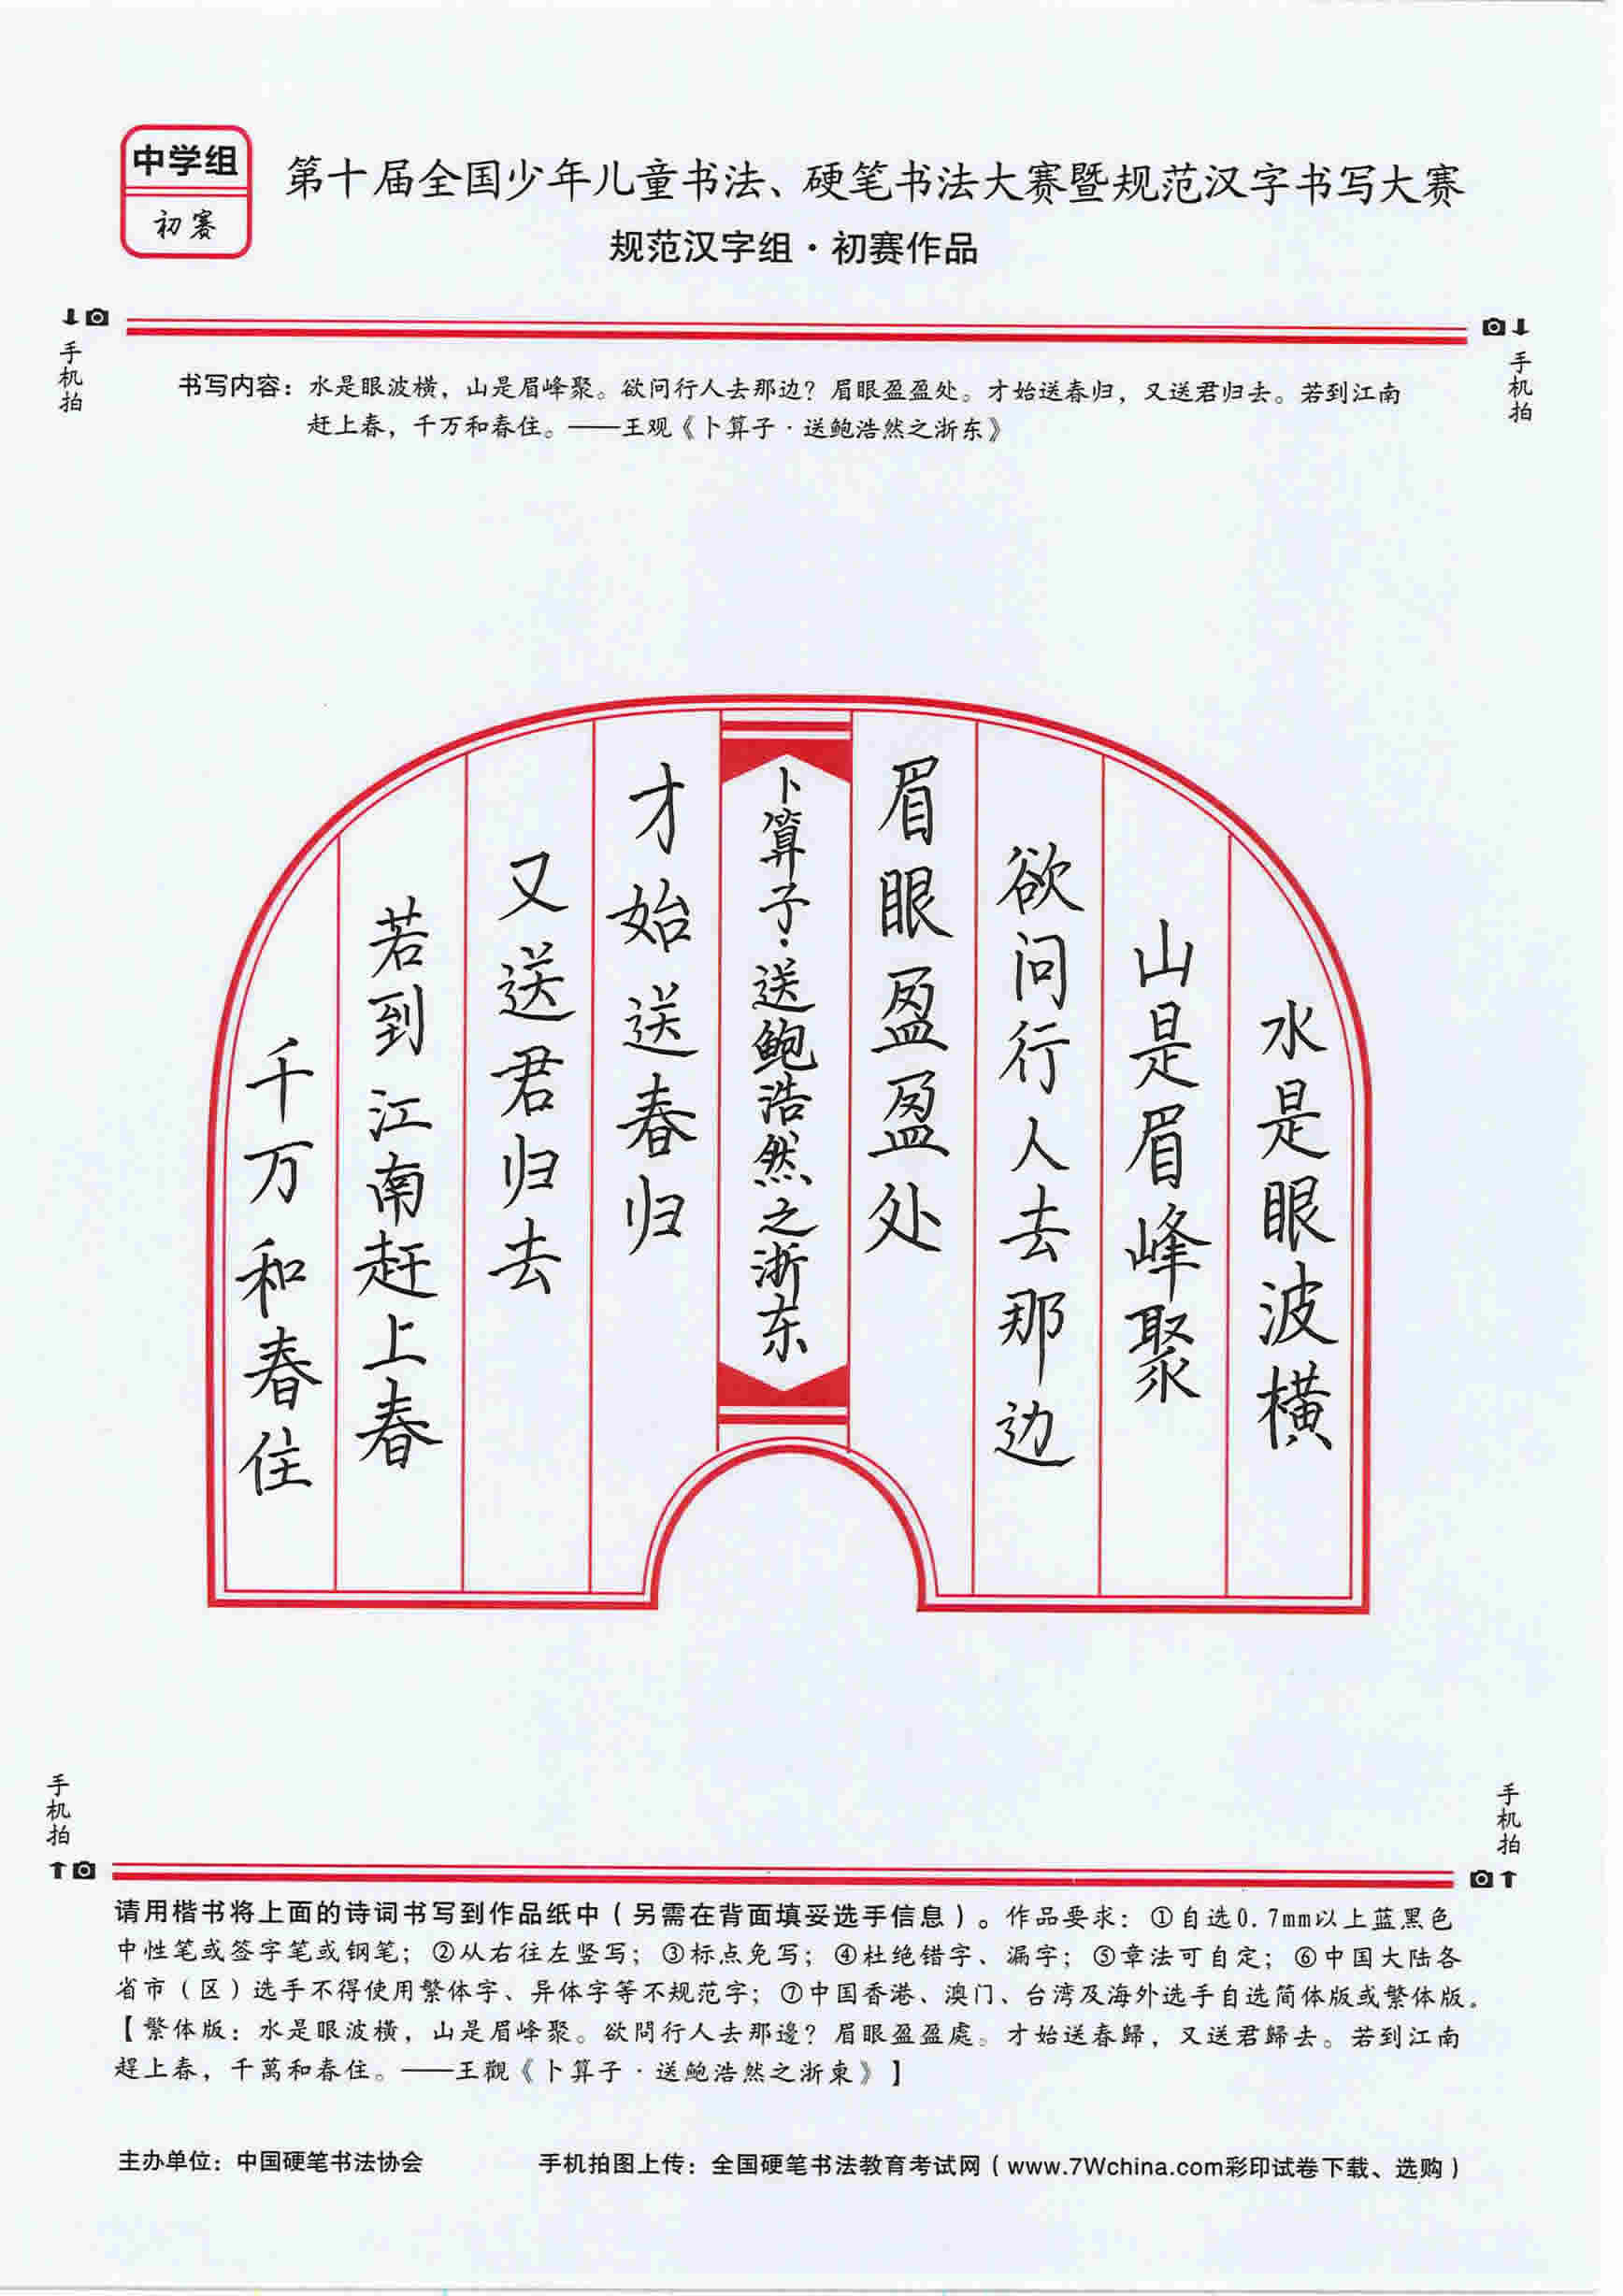 中学组
初赛
第十届全国少年儿童书法、硬笔书法大赛暨规范汉字书写大赛
规范汉字组·初赛作品
手机拍
手机拍
书写内容：水是眼波横，山是眉峰聚。欲问行人去那边？眉眼盈盈处。才始送春归，又送君归去。若到江南
赶上春，千万和春住。——王观《卜算子·送鲍浩然之浙东》
水是眼波横
山是眉峰聚
欲问行人去那边
眉眼盈盈处
卜算子·送鲍浩然之浙东
才始送春归
又送君归去
若到江南赶上春
千万和春住
手机拍
手机拍
请用楷书将上面的诗词书写到作品纸中（另需在背面填妥选手信息）。作品要求：①自选0.7mm以上蓝黑色
中性笔或签字笔或钢笔；②从右往左竖写；③标点免写；④杜绝错字、漏字；⑤章法可自定；⑥中国大陆各
省市（区）选手不得使用繁体字、异体字等不规范字；⑦中国香港、澳门、台湾及海外选手自选简体版或繁体版。
【繁体版：水是眼波橫，山是眉峰聚。欲問行人去那邊？眉眼盈盈處。才始送春歸，又送君歸去。若到江南
趕上春，千萬和春住。——王觀《卜算子·送鮑浩然之浙東》】
主办单位：中国硬笔书法协会
手机拍图上传：全国硬笔书法教育考试网（www.7Wchina.com彩印试卷下载、选购）